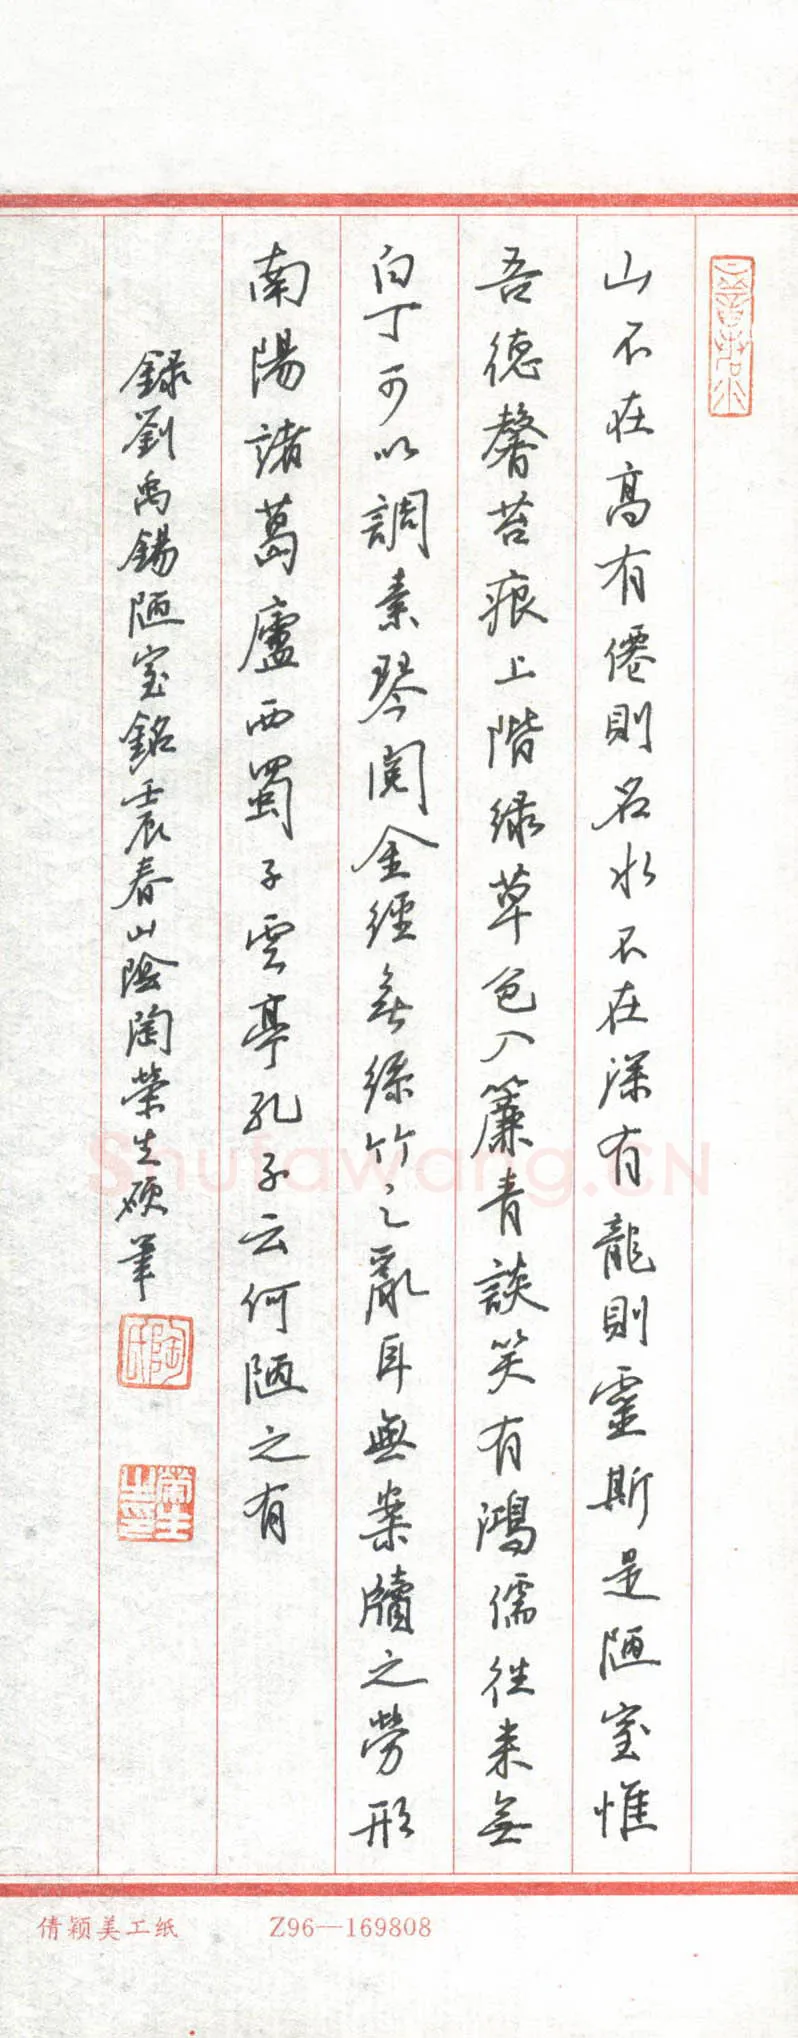 山不在高有僊則名水不在深有龍則靈斯是陋室惟
吾德馨苔痕上階綠草色入簾青談笑有鴻儒往來無
白丁可以調素琴閱金經無絲竹之亂耳無案牘之勞形
南陽諸葛廬西蜀子雲亭孔子云何陋之有
錄劉禹錫陋室銘壬辰春山陰陶榮生硬筆
陶
榮生
倩颖美工纸 Z96—169808
Shufawang.CN